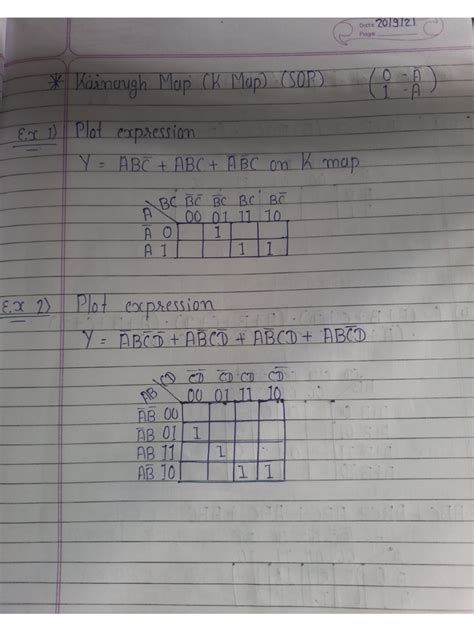 Date 20/9/21
Page
* Kairnaugh Map (K Map) (SOP) (0 - Ā
1 - A)
Ex 1) Plot expression
Y = ABC̄ + ABC + ĀB̄C on K map
BC B̄C̄ B̄C BC BC̄
A 00 01 11 10
Ā 0 1
A 1 1 1
Ex 2) Plot expression
Y = ĀBC̄D̄ + ABC̄D + AB̄CD + AB̄CD̄
CD C̄D̄ C̄D CD CD̄
AB 00 01 11 10
ĀB̄ 00
ĀB 01 1
AB 11 1
AB̄ 10 1 1